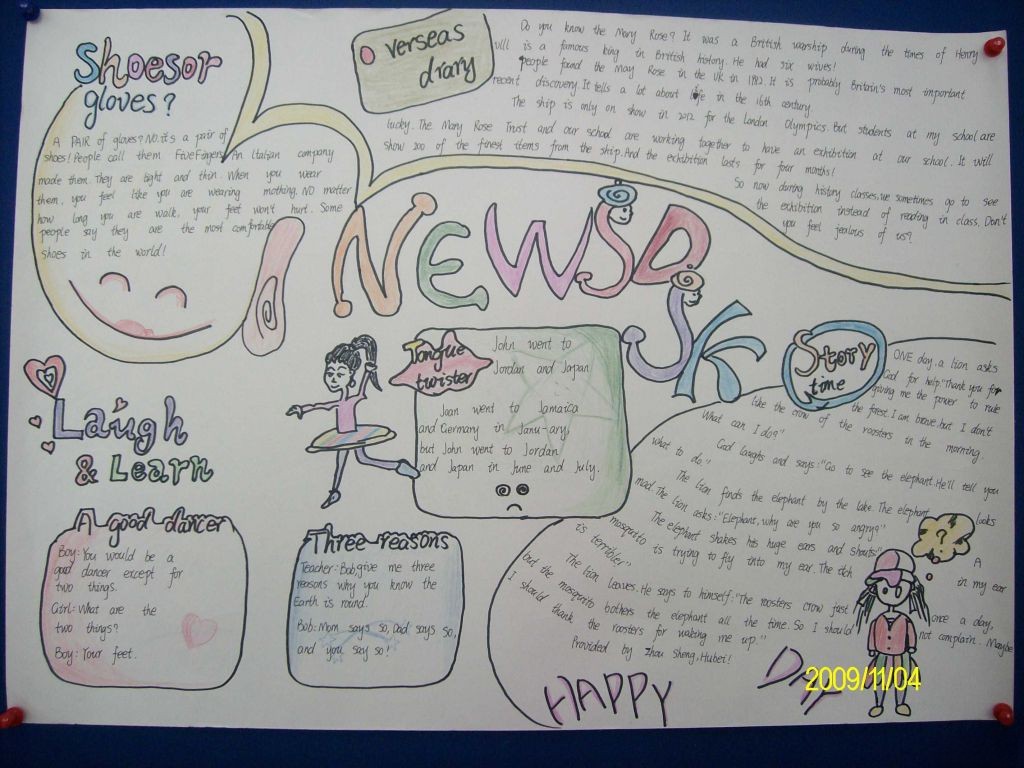 Shoesor
gloves?
A PAIR of gloves? NO. it's a pair of
shoes! People call them FiveFingers. An Italian company
made them. They are tight and thin. When you wear
them, you feel like you are wearing mothing. NO matter
how long you are walk, your feet won't hurt. Some
people say they are the most comfortable
shoes in the world!
verseas
diary
Do you know the Mary Rose? It was a British warship during the times of Henry
VIII is a famous king in British history. He had six wives!
People found the Mary Rose in the UK in 1982. It is probably Britain's most important
recent discovery. It tells a lot about life in the 16th century.
The ship is only on show in 2012 for the London Olympics. But students at my school are
lucky. The Mary Rose Trust and our school are working together to have an exhibition at our school. It will
show 200 of the finest items from the ship. And the exhibition lasts for four months!
So now during history classes, we sometimes go to see
the exhibition instead of reading in class. Don't
you feel jealous of us?
NEWSD
SK
Laugh
& Learn
Tongue
twister
John went to
Jordan and Japan
Joan went to Jamaica
and Germany in Janu-ary,
but John went to Jordan
and Japan in June and July.
Story
time
ONE day, a lion asks
God for help. "Thank you for
giving me the power to rule
the forest. I am brave. but I don't
like the crow of the roosters in the morning.
What can I do?"
God laughs and says: "Go to see the elephant. He'll tell you
what to do."
The lion finds the elephant by the lake. The elephant looks
mad. The lion asks: "Elephant, why are you so angry?"
The elephant shakes his huge ears and shouts: "A
mosquito is trying to fly into my ear. The itch in my ear
is terrible!"
The lion leaves. He says to himself: "The roosters crow just once a day,
but the mosquito bothers the elephant all the time. So I should not complain. Maybe
I should thank the roosters for waking me up."
Provided by Zhou Sheng, Hubei!
A good dancer
Boy: You would be a
good dancer except for
two things.
Girl: What are the
two things?
Boy: Your feet.
Three reasons
Teacher: Bob, give me three
reasons why you know the
Earth is round.
Bob: Mom says so, Dad says so,
and you say so!
?
HAPPY
DAY
2009/11/04